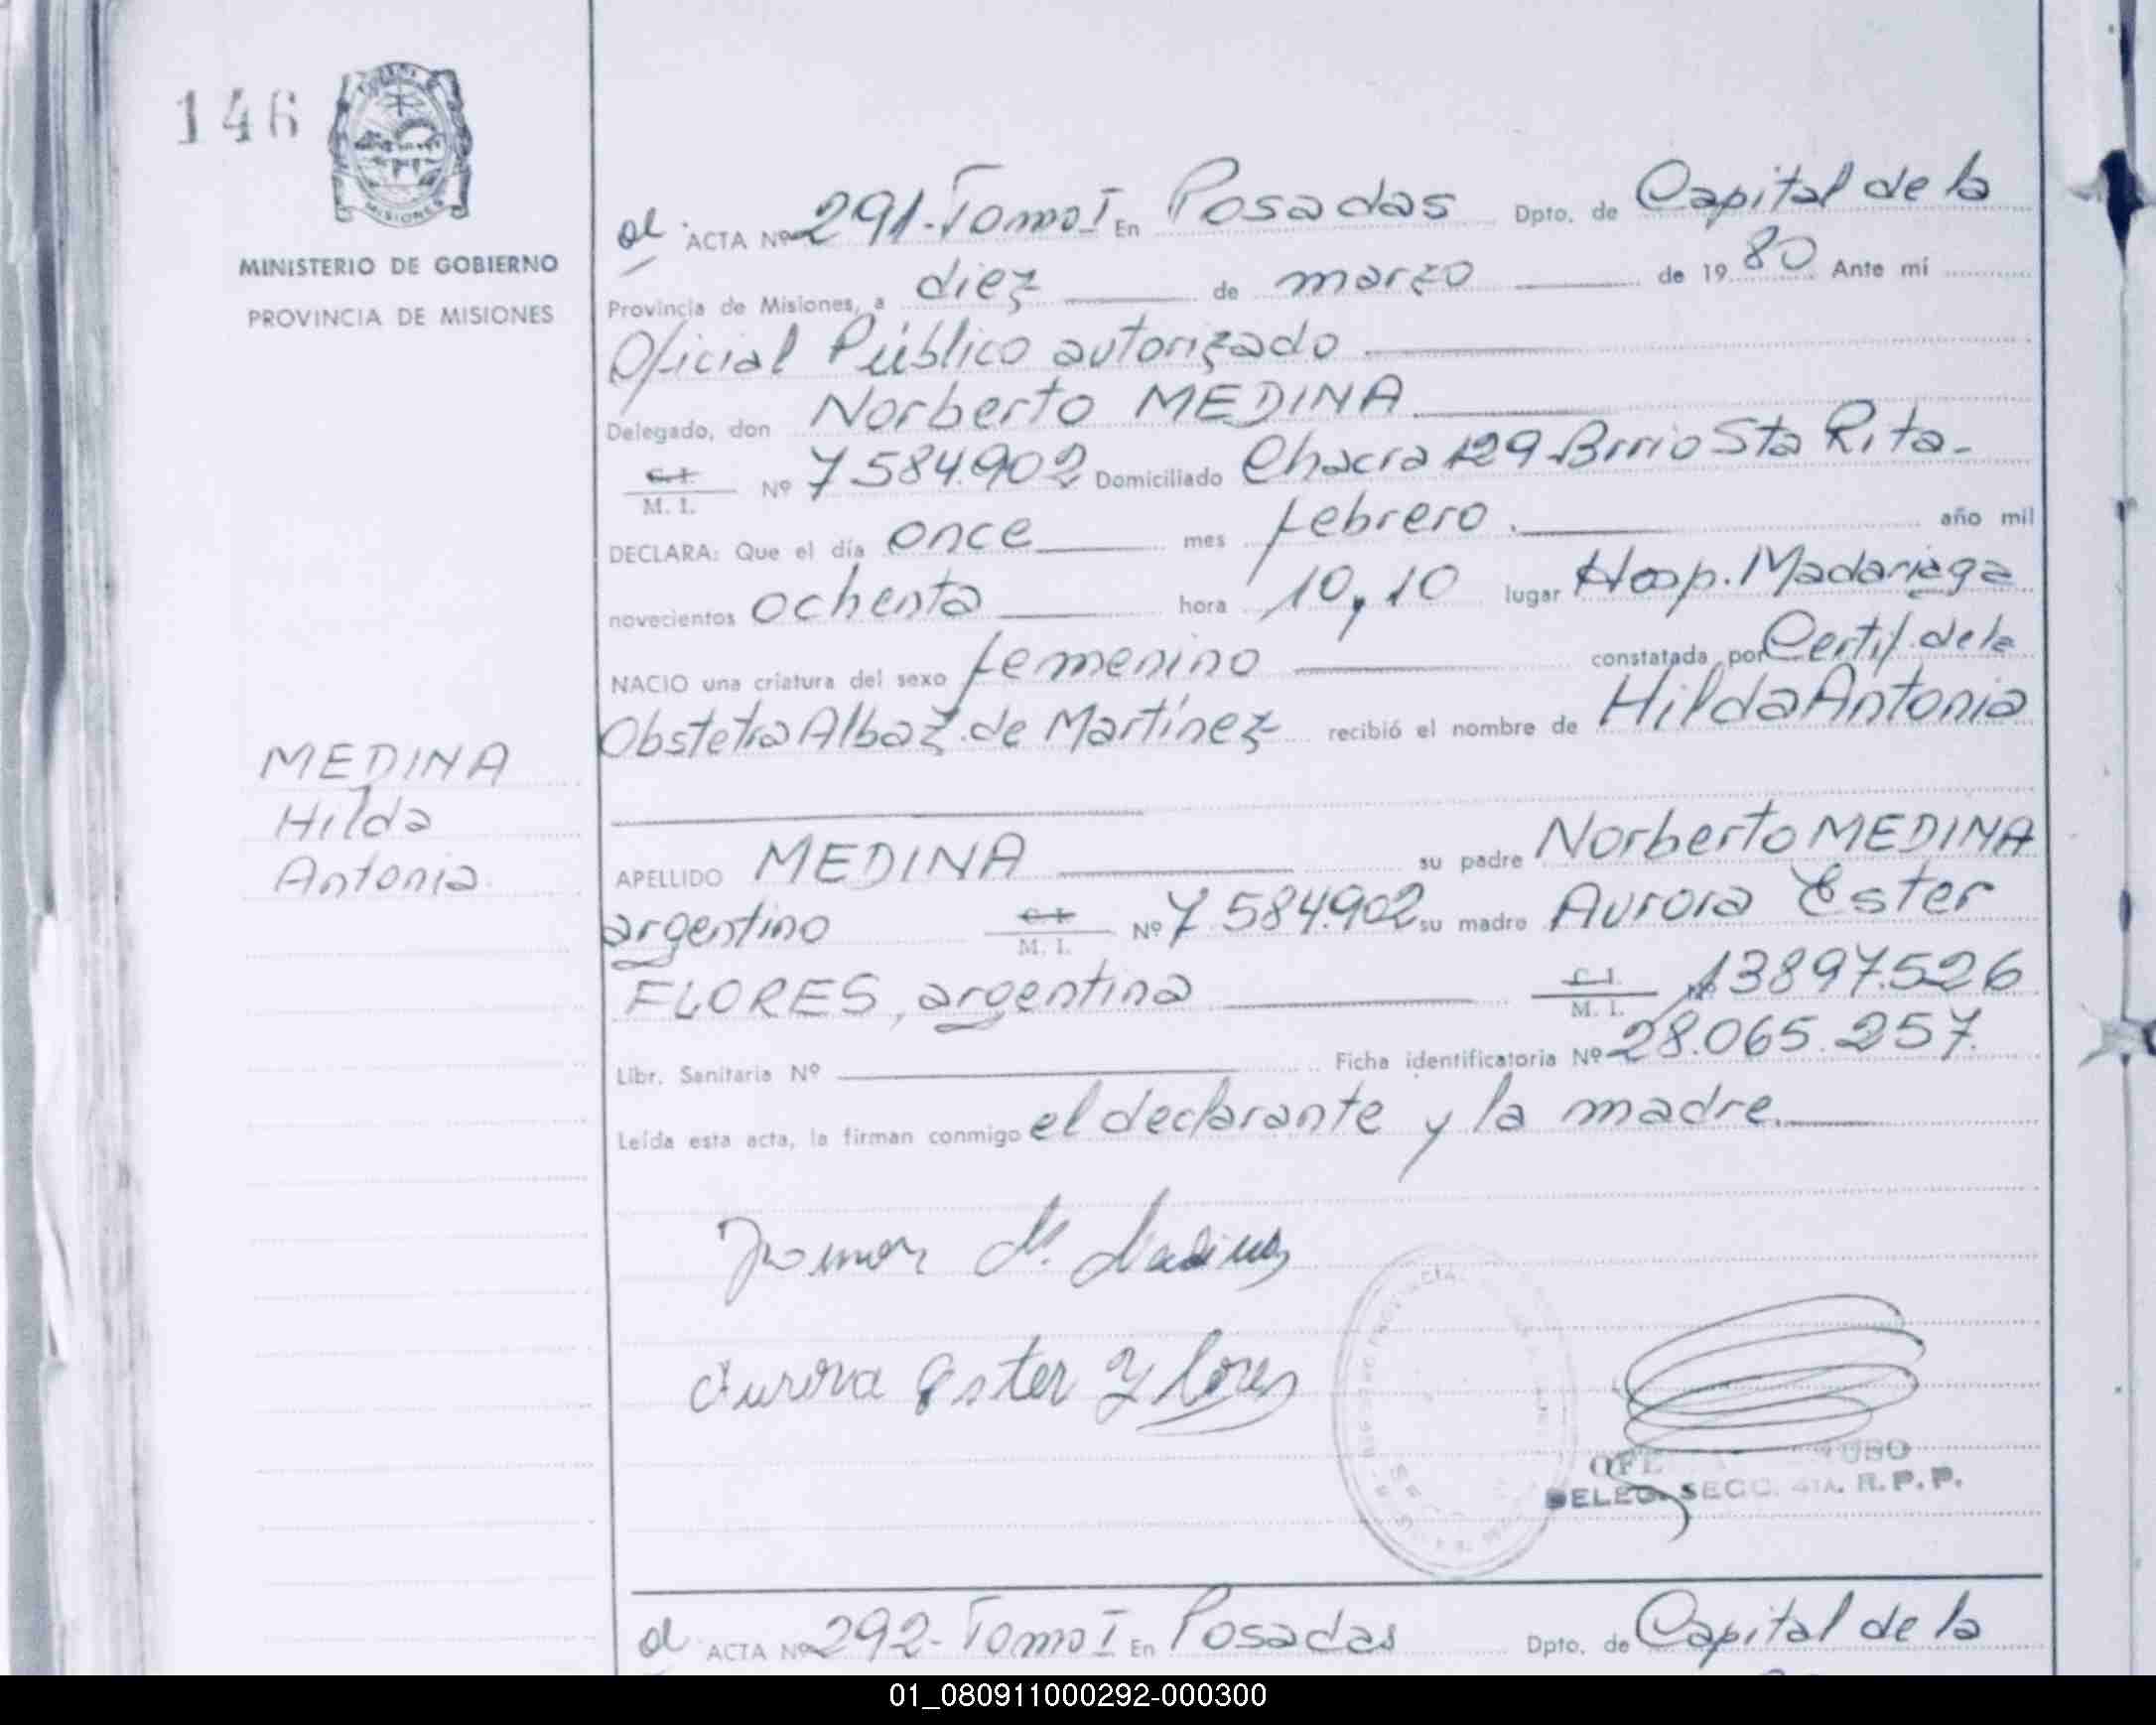 146
MISIONES
MINISTERIO DE GOBIERNO
PROVINCIA DE MISIONES
MEDINA
Hilda
Antonia
ACTA Nº 291-Tomo I En Posadas Dpto. de Capital de la
Provincia de Misiones, a diez de marzo de 1980 Ante mí
Oficial Público autorizado
Delegado, don Norberto MEDINA
C. I.
M. I. Nº 7.584.902 Domiciliado Chacra 129 Brrio Sta Rita-
DECLARA: Que el día once mes febrero. año mil
novecientos ochenta hora 10,10 lugar Hosp. Madariaga
NACIO una criatura del sexo femenino constatada por Certif. de la
Obstetra Alba Z. de Martínez recibió el nombre de Hilda Antonia
APELLIDO MEDINA su padre Norberto MEDINA
argentino C. I. M. I. Nº 7.584.902 su madre Aurora Ester
FLORES, argentina C. I. M. I. 13897.526
Libr. Sanitaria Nº Ficha identificatoria Nº 28.065.257.
Leída esta acta, la firman conmigo el declarante y la madre.
Aurora Ester Flores
DELEG. SECC. 4TA. R.P.P.
ACTA Nº 292-Tomo I En Posadas Dpto. de Capital de la
01_080911000292-000300